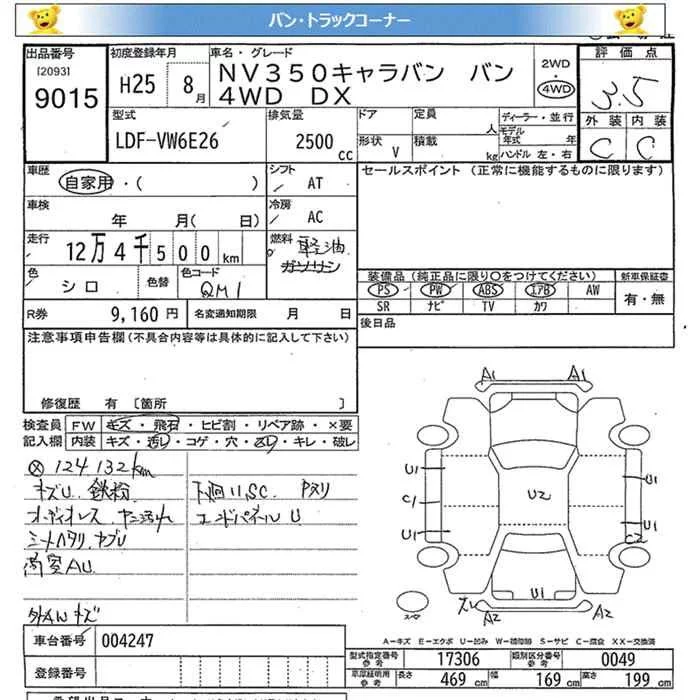 バン・トラックコーナー
出品番号 初度登録年月 車名・グレード 評価点
[2093]
9015 H25 8月 NV350キャラバン バン 2WD
4WD DX 4WD 3.5
型式 排気量 ドア 定員 人 ディーラー・並行 外装 内装
LDF-VW6E26 2500 CC 形状 V 積載 kg モデル年式 年 C C
ハンドル 左・右
車歴 シフト セールスポイント (正常に機能するものに限ります)
自家用・( ) AT
車検 冷房
年 月( 日) AC
走行 燃料
12万4千500km 軽油
ガソリン
色 シロ 色替 色コード QM1
装備品(純正品に限り○をつけてください) 新車保証書
PS PW ABS エアB AW 有・無
SR ナビ TV カワ
R券 9,160円 名変通知期限 月 日 後日品
注意事項申告欄(不具合内容等は具体的に記入して下さい)
修復歴 有 [箇所 ]
検査員 FW キズ・飛石・ヒビ割・リペア跡・×要
記入欄 内装 キズ・汚レ・コゲ・穴・スレ・キレ・破レ
124132km
キズU 鉄粉 下廻リ、SC. アメリ
オーディオレス ヤニ汚れ エンドパネルU
シートヘタリ、ヤブレ
AU
外AWキズ
A1 A1
U1 U1
C1 U2
U1 U1
C2
U1
スレ A2 A2
スペア
A-キズ E-エクボ U-凹み W-補修跡 S-サビ C-腐食 XX-交換済
車台番号 004247
型式指定番号 参考 17306 類別区分番号 参考 0049
登録番号
車庫証明用 参考 長さ 469 cm 幅 169 cm 高さ 199 cm